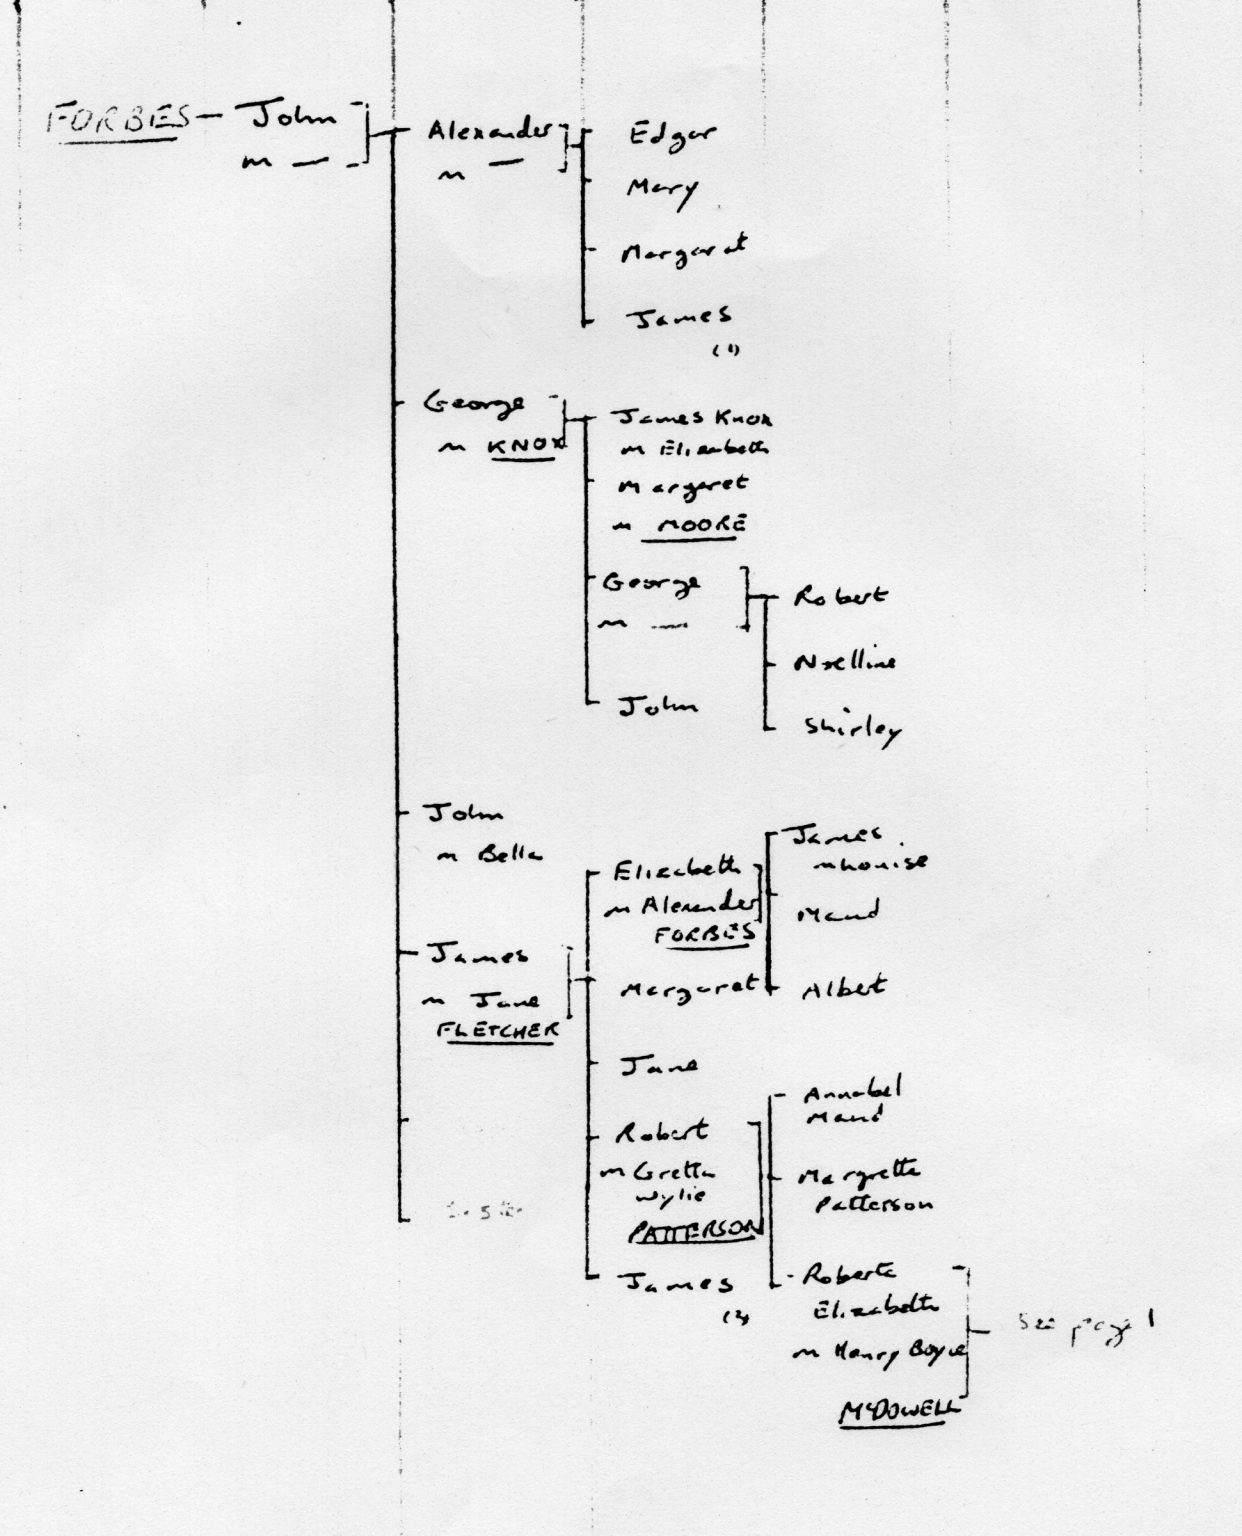 FORBES — John
m —
Alexander
m —
Edgar
Mary
Margaret
James
(1)
George
m KNOX
James Knox
m Elizabeth
Margaret
m MOORE
George
m —
John
Robert
Noelline
Shirley
John
m Bella
James
m Jane
FLETCHER
Elizabeth
m Alexander
FORBES
Margaret
Jane
Robert
m Gretta
Wylie
PATTERSON
James
(2)
James
m Louise
Maud
Albert
Annabel
Maud
Margretta
Patterson
Roberta
Elizabeth
m Henry Boyce
McDOWELL
See page 1